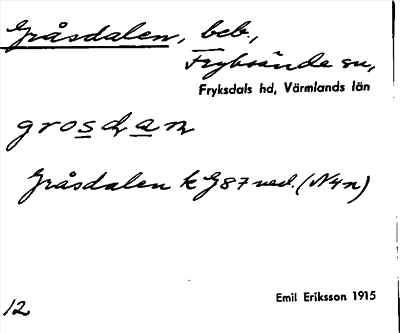 Gråsdalen, beb.,
Fryksände sn,
Fryksdals hd, Värmlands län
grosdan
Gråsdalen k G87 ned. (N4n)
12
Emil Eriksson 1915